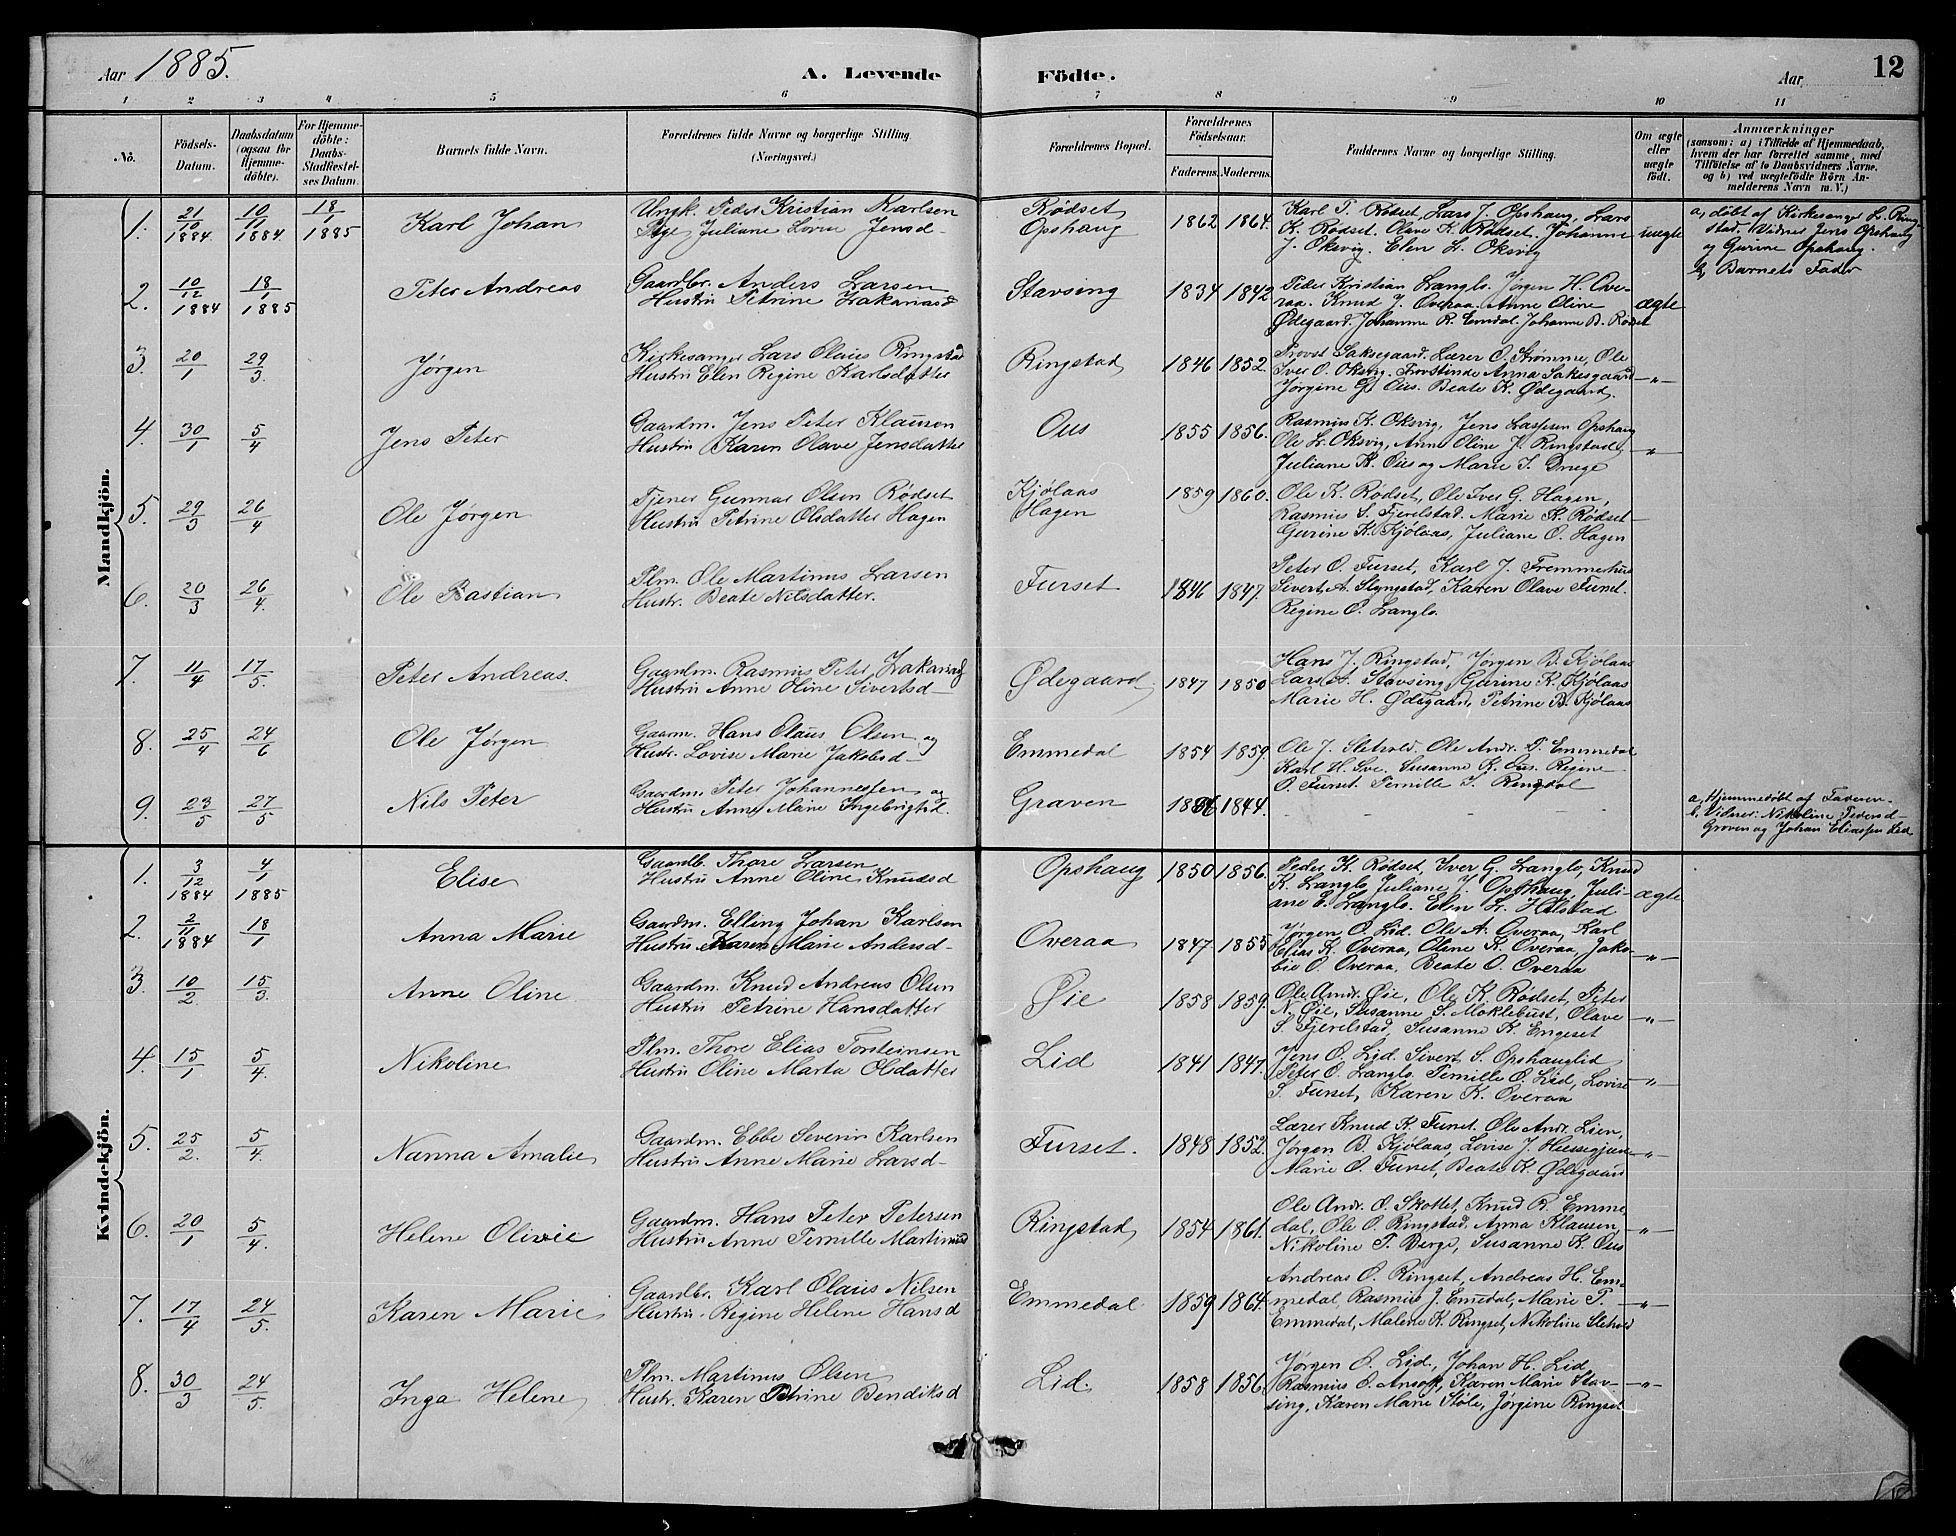 Aar 1885.
A. Levende Födte.
Aar
12
1 2 3 4 5 6 7 8 9 10 11
No.
Födsels-Datum.
Daabsdatum (ogsaa for Hjemmedöbte).
For Hjemmedöbte: Daabs-Stadfæstelses Datum.
Barnets fulde Navn.
Forældrenes fulde Navne og borgerlige Stilling. (Næringsvei.)
Forældrenes Bopæl.
Forældrenes Födselsaar.
Faderens. Moderens.
Faddernes Navne og borgerlige Stilling.
Om ægte eller uægte födt.
Anmærkninger
(saasom: a) i Tilfælde af Hjemmedaab, hvem der har forrettet samme, med Tilföielse af to Daabsvidners Navne, og b) ved uægtefödte Börn Anmelderens Navn m. V.)
Mandkjön.
1. 21/10 1884. 10/11 1884. 18/1 1885 Karl Johan
Ungk. Peder Kristian Karlsen
Pige Juliane Lovise Jensd-
Rødset
Opshaug
1862 1864.
Karl P. Rødset, Lars J. Opshaug, Lars
K. Rødset. Olave K. Rødset. Johanne
J. Oksvig. Elen L. Oksvig
uægte
a, døbt af Kirkesanger L. Ring-
stad. Vidner Jens Opshaug
og Gurine Opshaug.
b, Barnets Fader
2. 10/12 1884 18/1 1885 Peter Andreas
Gaardbr. Anders Larsen
Hustru Petrine Zakariasd
Stavsing 1834 1842
Peder Kristian Langlo. Jørgen H. Ove-
raa. Knud J. Overaa. Anne Oline
Ødegaard. Johanne R. Emdal. Johanne B. Rødset
ægte
3. 20/1 29/3. Jørgen
Kirkesanger Lars Olaus Ringstad
Hustru Elen Regine Karlsdatter
Ringstad 1846 1852.
Provst Saksegaard. Lærer O. Strømme, Ole
Iver O. Oksvig. Provstinde Anna Saksegaard
Jørgine G. Ous. Beate K. Ødegaard.
-"-
4. 30/1 5/4 Jens Peter
Gaardm. Jens Peter Klausen
Hustru Karen Olave Jensdatter
Ous 1855 1856.
Rasmus K. Oksvig, Jens Larsen Opshaug
Ole L. Oksvig, Anne Oline J. Ringstad,
Juliane K. Ous og Marie S.
-"-
5. 29/3 26/4 Ole Jørgen
Tjener Gunnar Olsen Rødset
Hustru Petrine Olsdatter Hagen
Kjølaas
Hagen
1859 1860.
Ole K. Rødset, Ole Iver G. Hagen,
Rasmus S. Fjerelstad. Marie K. Rødset
Gurine K. Kjølaas, Juliane O. Hagen
6. 20/3 26/4. Ole Bastian
Plm. Ole Martinus Larsen
Hustr. Beate Nilsdatter.
Furset 1846 1847.
Peter O. Furset, Karl J. Fremmerhus
Sivert A. Slyngstad, Karen Olave Furset.
Regine O. Langlo.
7. 11/4 17/5. Peter Andreas.
Gaardm. Rasmus Peter Zakariasd
Hustru Anne Oline Sivertsd-
Ødegaard 1847 1850
Hans J. Ringstad, Jørgen B. Kjølaas
Lars A. Stavsing, Gurine K. Kjølaas
Marie H. Ødegaard, Petrine B. Kjølaas
8. 25/4 24/6 Ole Jørgen
Gaarm. Hans Olaus Olsen og
Hustr. Lovise Marie Jakobsd-
Emmedal 1854 1859.
Ole J. Slethold. Ole Andr. P. Emmedal
Karl H. Sve. Susanne K. Ous. Regine
O. Furset. Pernille S. Ringdal
9. 23/5 27/5 Nils Peter
Gaardm Peter Johannessen og
Hustru Anne Marie Ingebrigtsd.
Graven 1844.
- - -
a, Hjemmedøbt af Faderen-
b, Vidner: Nikoline Pedersd-
Graven og Johan Eliassen Lid
Kvindekjön.
1. 3/12 1884 4/1 1885 Elise
Gaardb. Thore Larsen
Hustru Anne Oline Knudsd
Opshaug 1850 1856.
Peder K. Rødset, Iver G. Langlo, Knud
K. Langlo, Juliane J. Opshaug, Juli-
ane E. Langlo. Elen L. Hilstad
ægte
2. 2/11 1884 18/1 Anna Marie
Gaardm. Elling Johan Karlsen
Hustru Karen Marie Andersd-
Overaa 1847. 1855
Jørgen O. Lid. Ole A. Overaa, Karl
Elias K. Overaa, Oline K. Overaa, Jako-
bie O. Overaa, Beate O. Overaa
-"-
3. 10/2 15/3. Anne Oline
Gaardm. Knud Andreas Olsen
Hustru Petrine Hansdatter
Øie 1858 1859.
Ole Andr. Øie, Ole K. Rødset, Peter
N. Øie, Susanne S. Moklebust, Olave
S. Fjerelstad, Susanne K. Engeset
-"-
4. 15/1 5/4. Nikoline
Plm. Thore Elias Torsteinsen
Hustru Oline Marta Olsdatter
Lid 1841 1847.
Jens O. Lid. Sivert S. Opshauglid
Peter O. Langlo. Pernille O. Lid, Lovise
S. Furset, Karen K. Overaa
-"-
5. 25/2. 5/4. Nanna Amalie
Gaardm. Ebbe Severin Karlsen
Hustru Anne Marie Larsd-
Furset. 1848 1852.
Lærer Knud K. Furset. Ole Andr. Lien,
Jørgen B. Kjølaas, Lovise J.
Marie O. Furset, Beate K. Ødegaard
-"-
6. 20/1 5/4. Helene Olivie
Gaardm. Hans Peter Petersen
Hustru Anne Pernille Martinusd
Ringstad 1854 1861.
Ole Andr. O. Skottet, Knud R. Emme
dal, Ole O. Ringstad, Anna Klausen,
Nikoline P. Berge, Susanne K. Ous
-"-
7. 17/4 24/5. Karen Marie
Gaardbr. Karl Olaus Nilsen
Hustru. Regine Helene Hansd
Emmedal 1859 1864.
Andreas O. Ringset, Andreas H. Em-
medal, Rasmus J. Emedal, Marie P.
Emmedal, Malene K. Ringset, Nikoline Slethold
-"-
8. 30/3 24/5. Inga Helene
Plm. Martinus Olsen
Hustr. Karen Petrine Bendiksd
Lid 1858 1856.
Jørgen O. Lid, Johan H. Lid
Rasmus O. Ansok, Karen Marie Stav-
sing, Karen Marie Støle, Jørgine Ringset
-"-